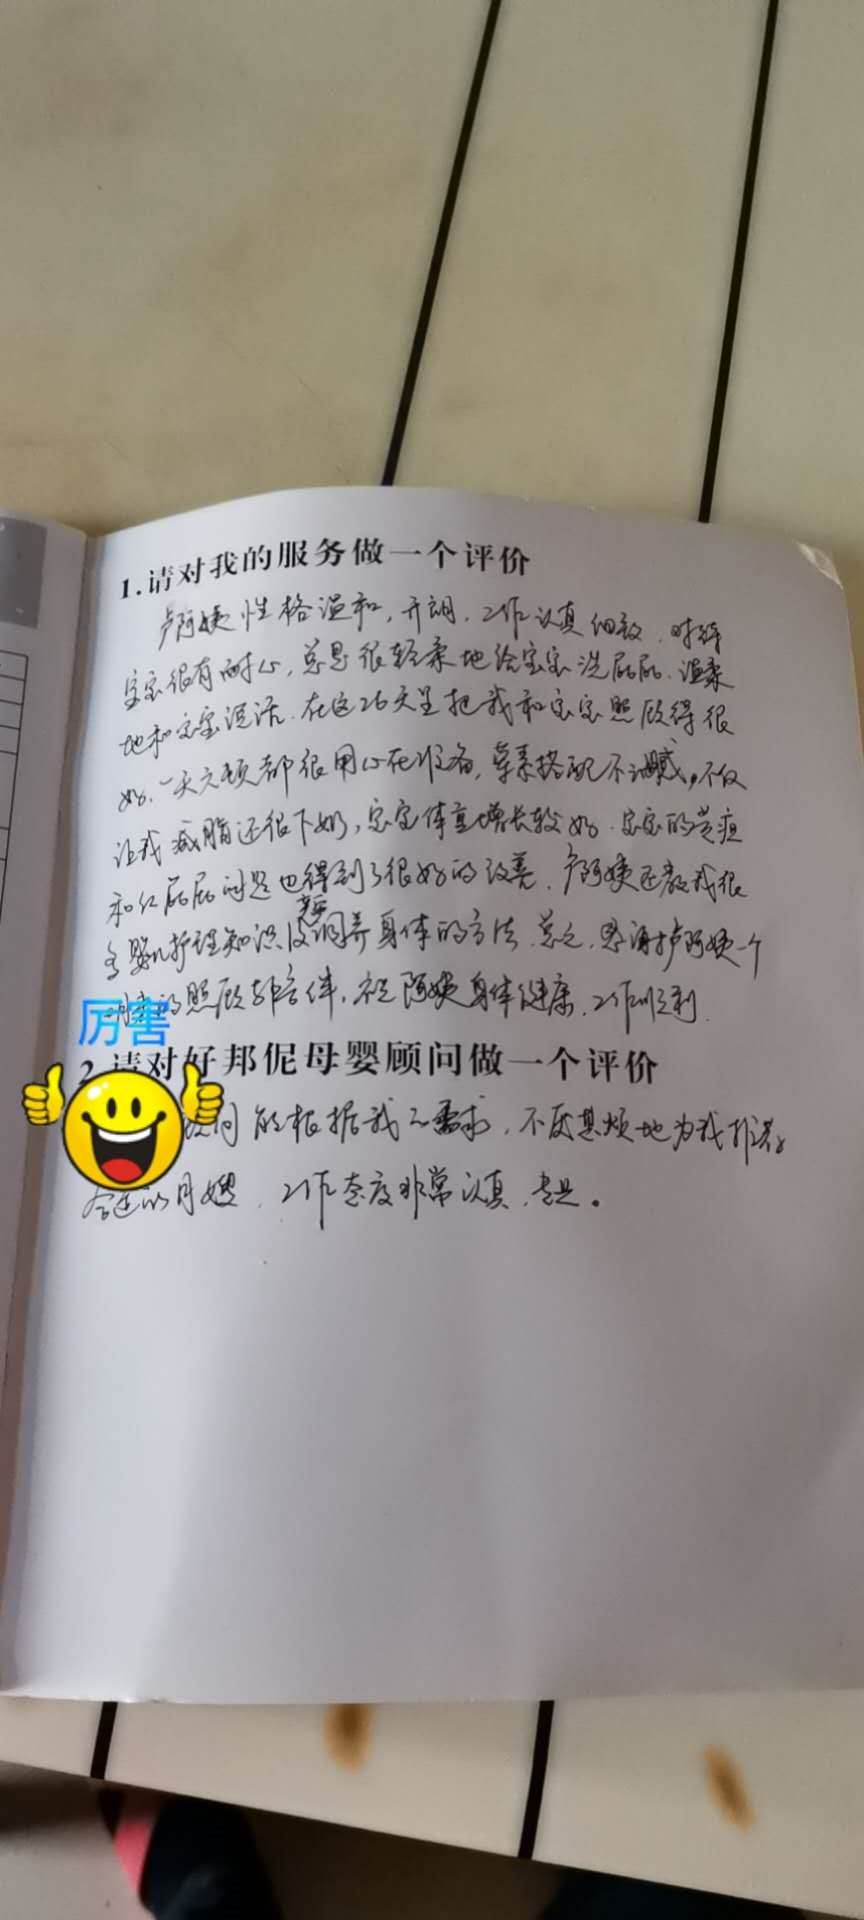 1.请对我的服务做一个评价
卢阿姨性格温和,开朗.工作认真细致.对待
宝宝很有耐心,总是很轻柔地给宝宝洗屁屁.温柔
地和宝宝说话.在这26天里把我和宝宝照顾得很
好.一天六顿都很用心在准备,荤素搭配不油腻,不仅
让我减脂还很下奶,宝宝体重增长较好.宝宝的黄疸
和红屁屁问题也得到了很好的改善.卢阿姨还教我很
多婴儿护理知识及调养身体的方法.总之,感谢卢阿姨一个
的照顾和陪伴,祝阿姨身体健康.工作顺利.
厉害
2.请对好邦伲母婴顾问做一个评价
顾问能根据我的需求,不厌其烦地为我推荐
合适的月嫂.工作态度非常认真.专业。